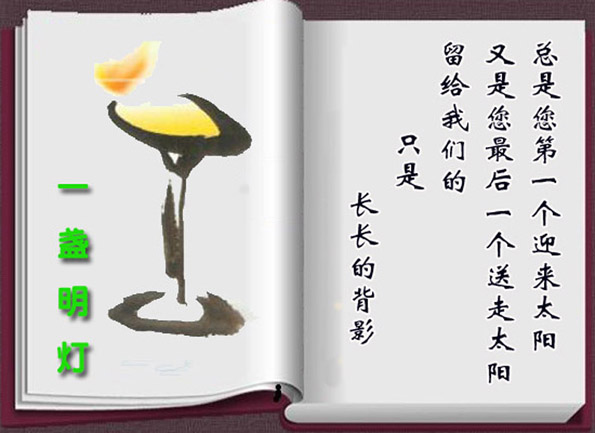 一盏明灯
总是您第一个迎来太阳
又是您最后一个送走太阳
留给我们的
只是
长长的背影